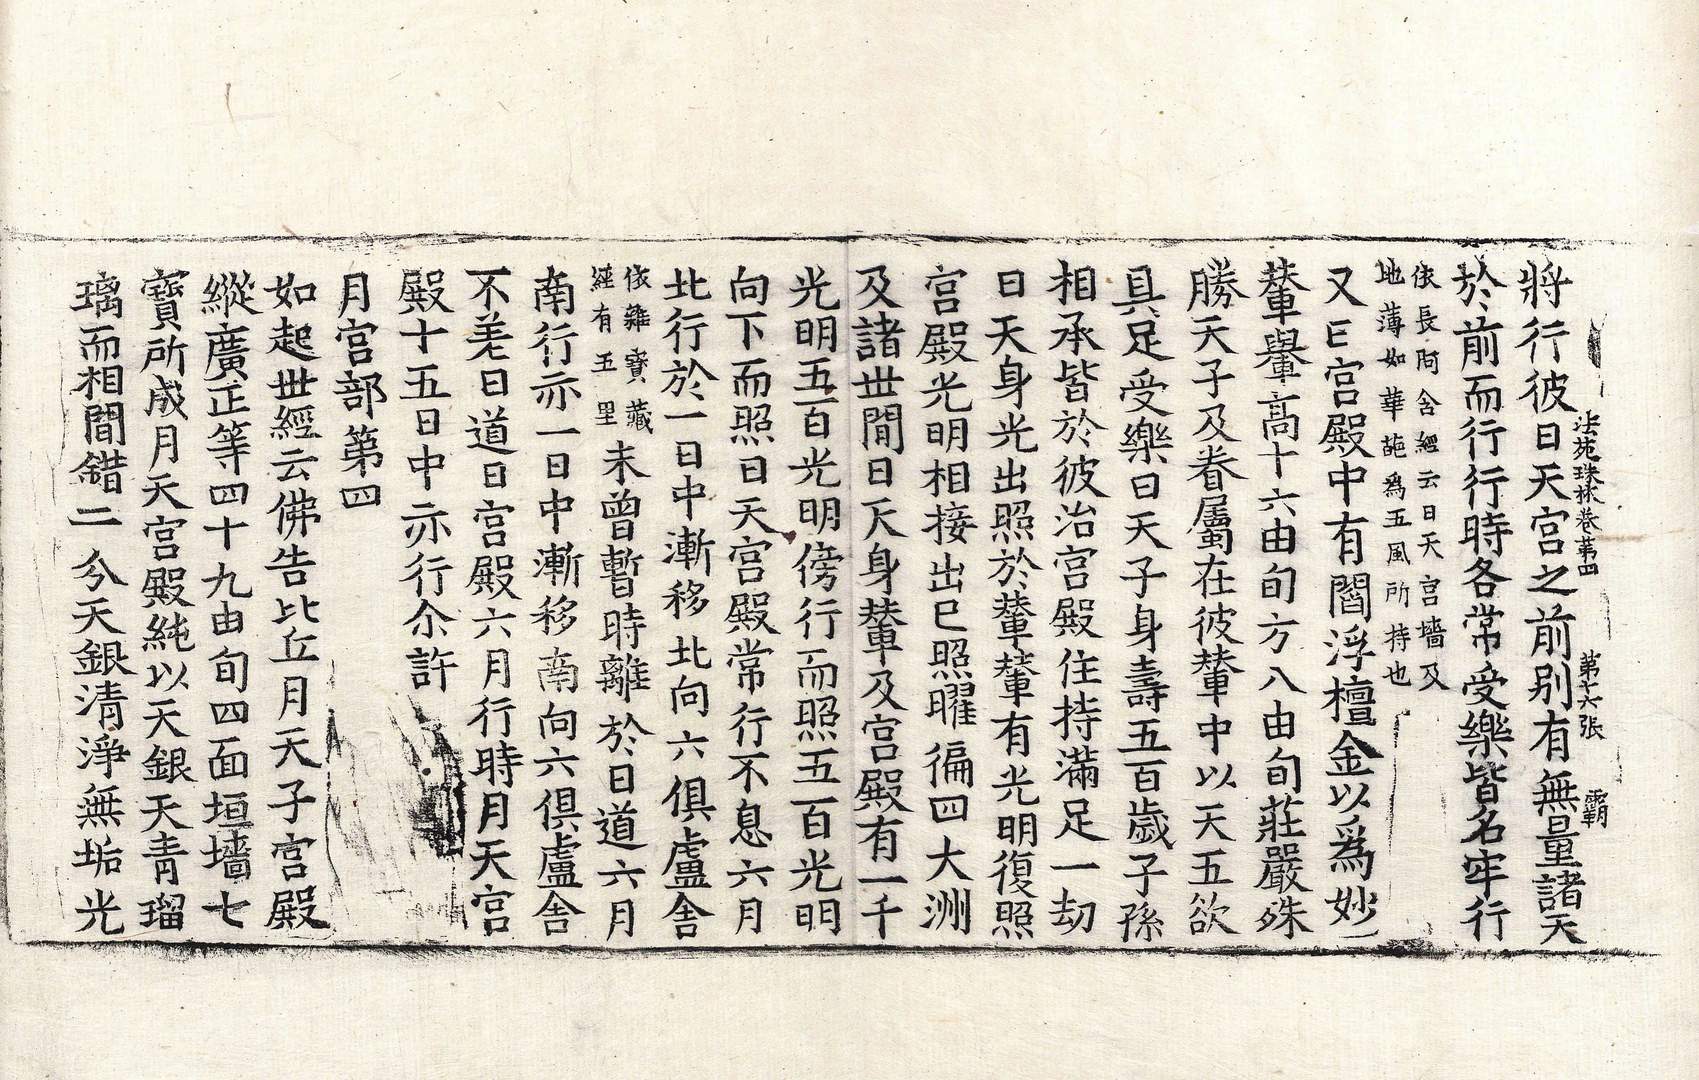 法苑珠林卷第四　第十六張　霸
將行彼日天宮之前別有無量諸天
於前而行行時各常受樂皆名牢行
依長阿含經云日天宮墻及
地薄如華葩為五風所持也
又日宮殿中有閻浮檀金以為妙
輦轝高十六由旬方八由旬莊嚴殊
勝天子及眷屬在彼輦中以天五欲
具足受樂日天子身壽五百歲子孫
相承皆於彼治宮殿住持滿足一劫
日天身光出照於輦輦有光明復照
宮殿光明相接出巳照曜徧四大洲
及諸世間日天身輦及宮殿有一千
光明五百光明傍行而照五百光明
向下而照日天宮殿常行不息六月
北行於一日中漸移北向六俱盧舍
依雜寶藏
經有五里
未曾暫時離於日道六月
南行亦一日中漸移南向六俱盧舍
不差日道日宮殿六月行時月天宮
殿十五日中亦行尒許
月宮部第四
如起世經云佛告比丘月天子宮殿
縱廣正等四十九由旬四面垣墻七
寶所成月天宮殿純以天銀天青瑠
璃而相間錯二分天銀清淨無垢光